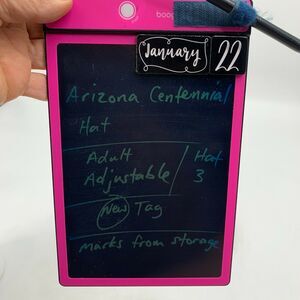 boog
January 22
Arizona Centennial
Hat
Adult
Adjustable / Hat 3
New Tag
marks from storage